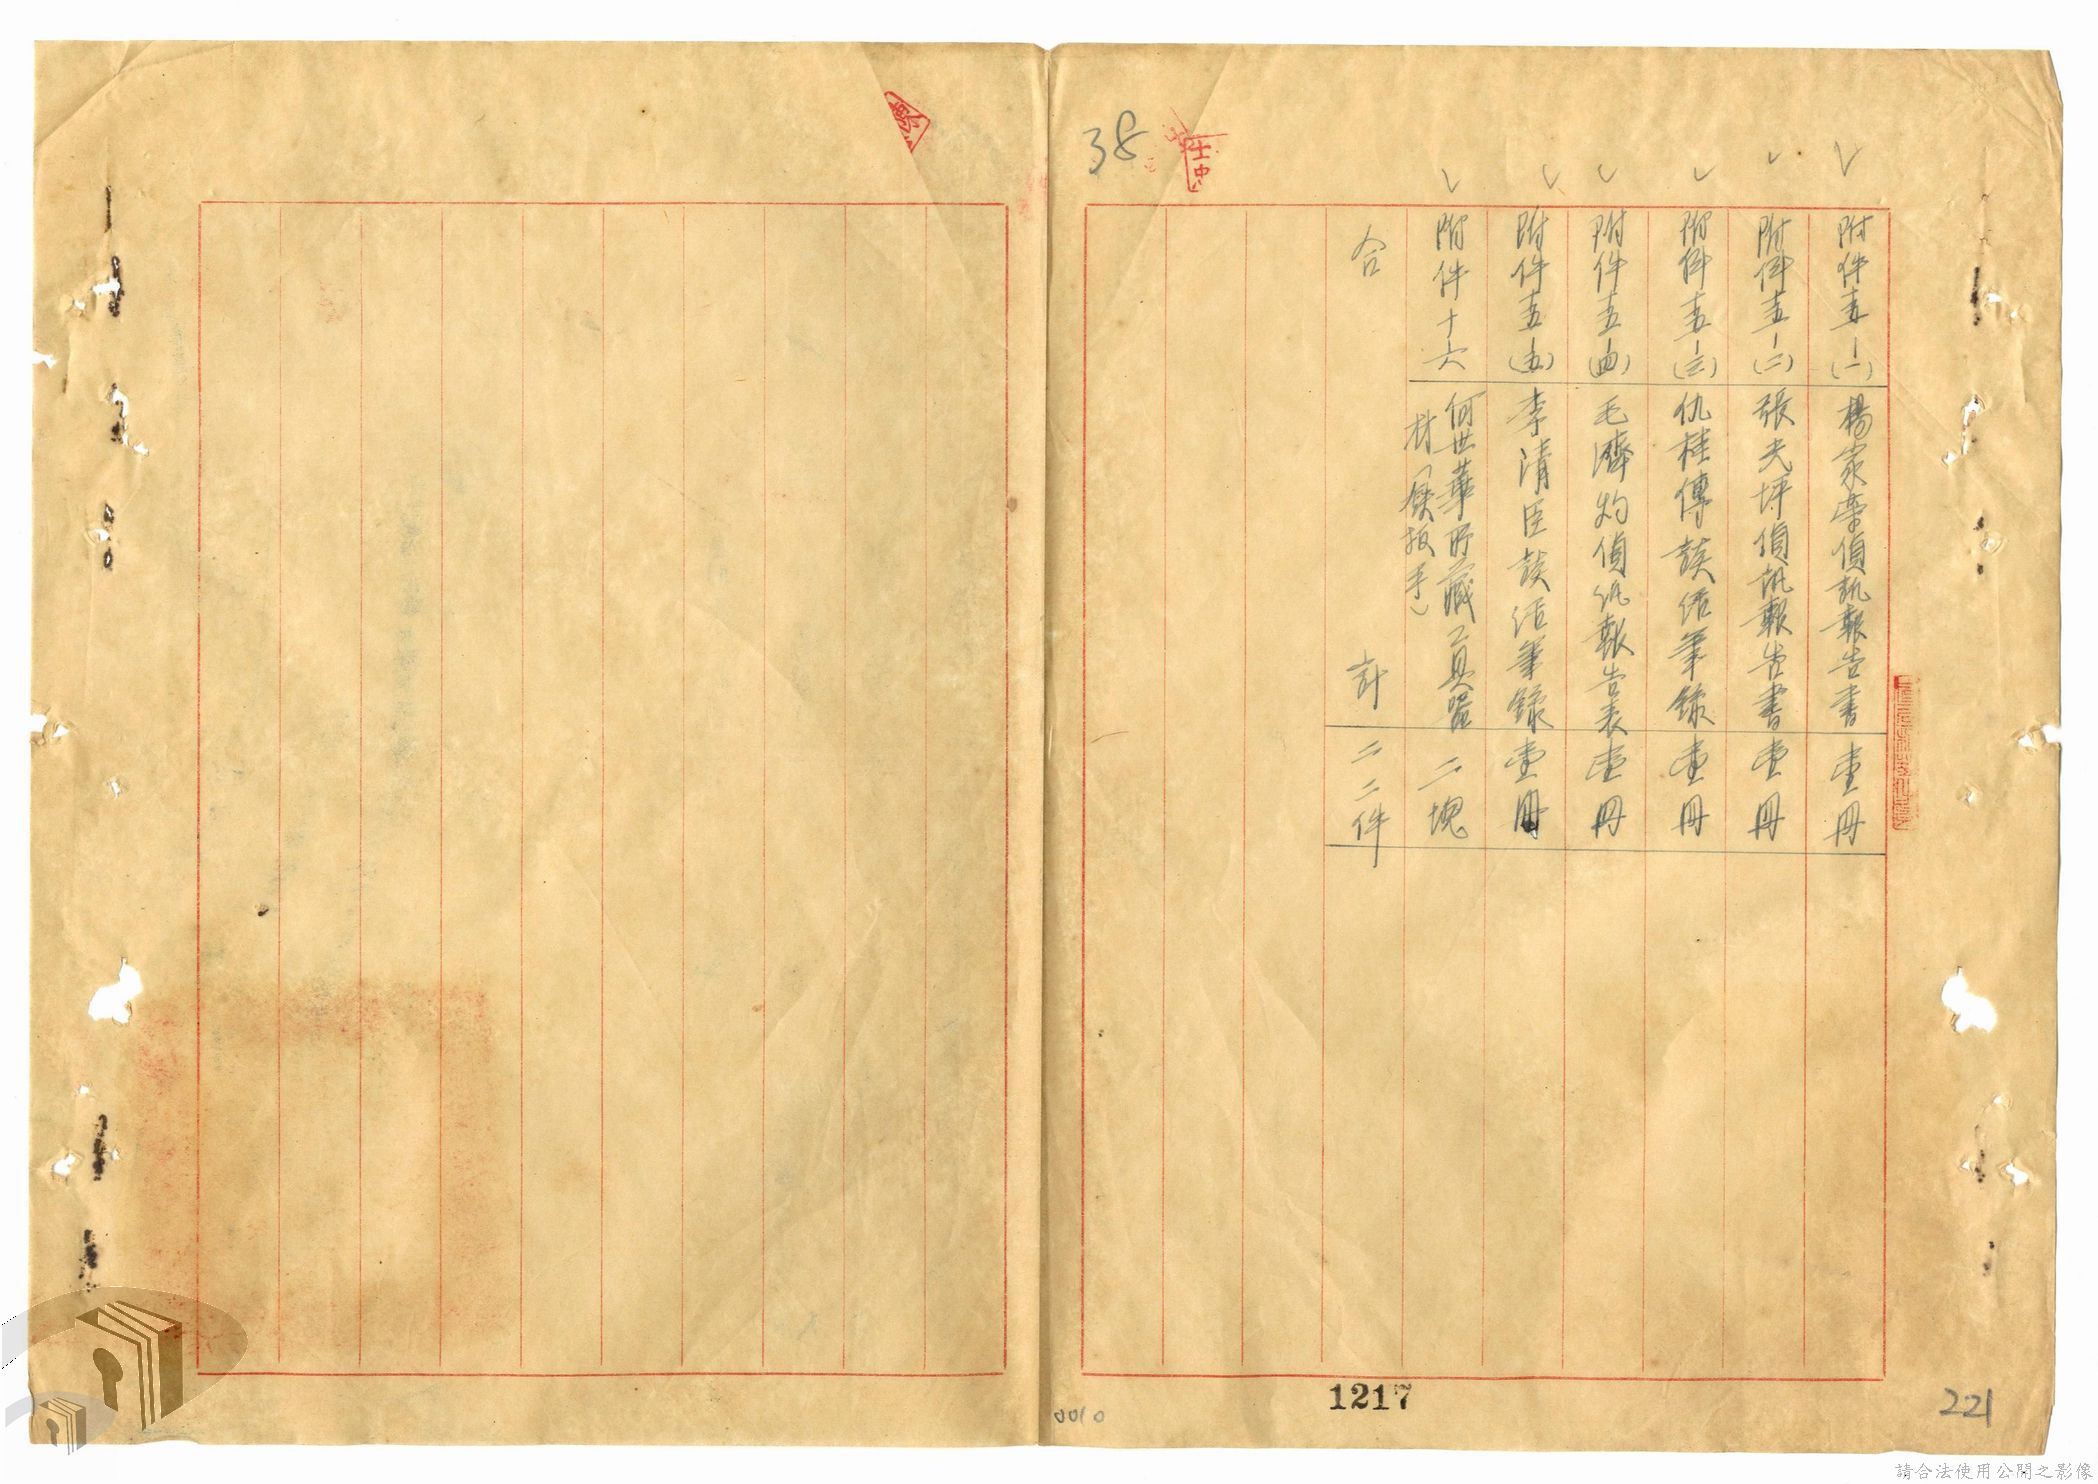 38
附件十五-(一) 楊家摩偵訊報告書 壹冊
附件十五-(二) 張光坪偵訊報告書 壹冊
附件十五-(三) 仇桂傳談話筆錄 壹冊
附件十五-(四) 毛濟灼偵訊報告表 壹冊
附件十五-(五) 李清臣談話筆錄 壹冊
附件十六 何世華所藏工具器 二塊
材(鐵扳手)
合 計 二二件
1217
0010
221
請合法使用公開之影像